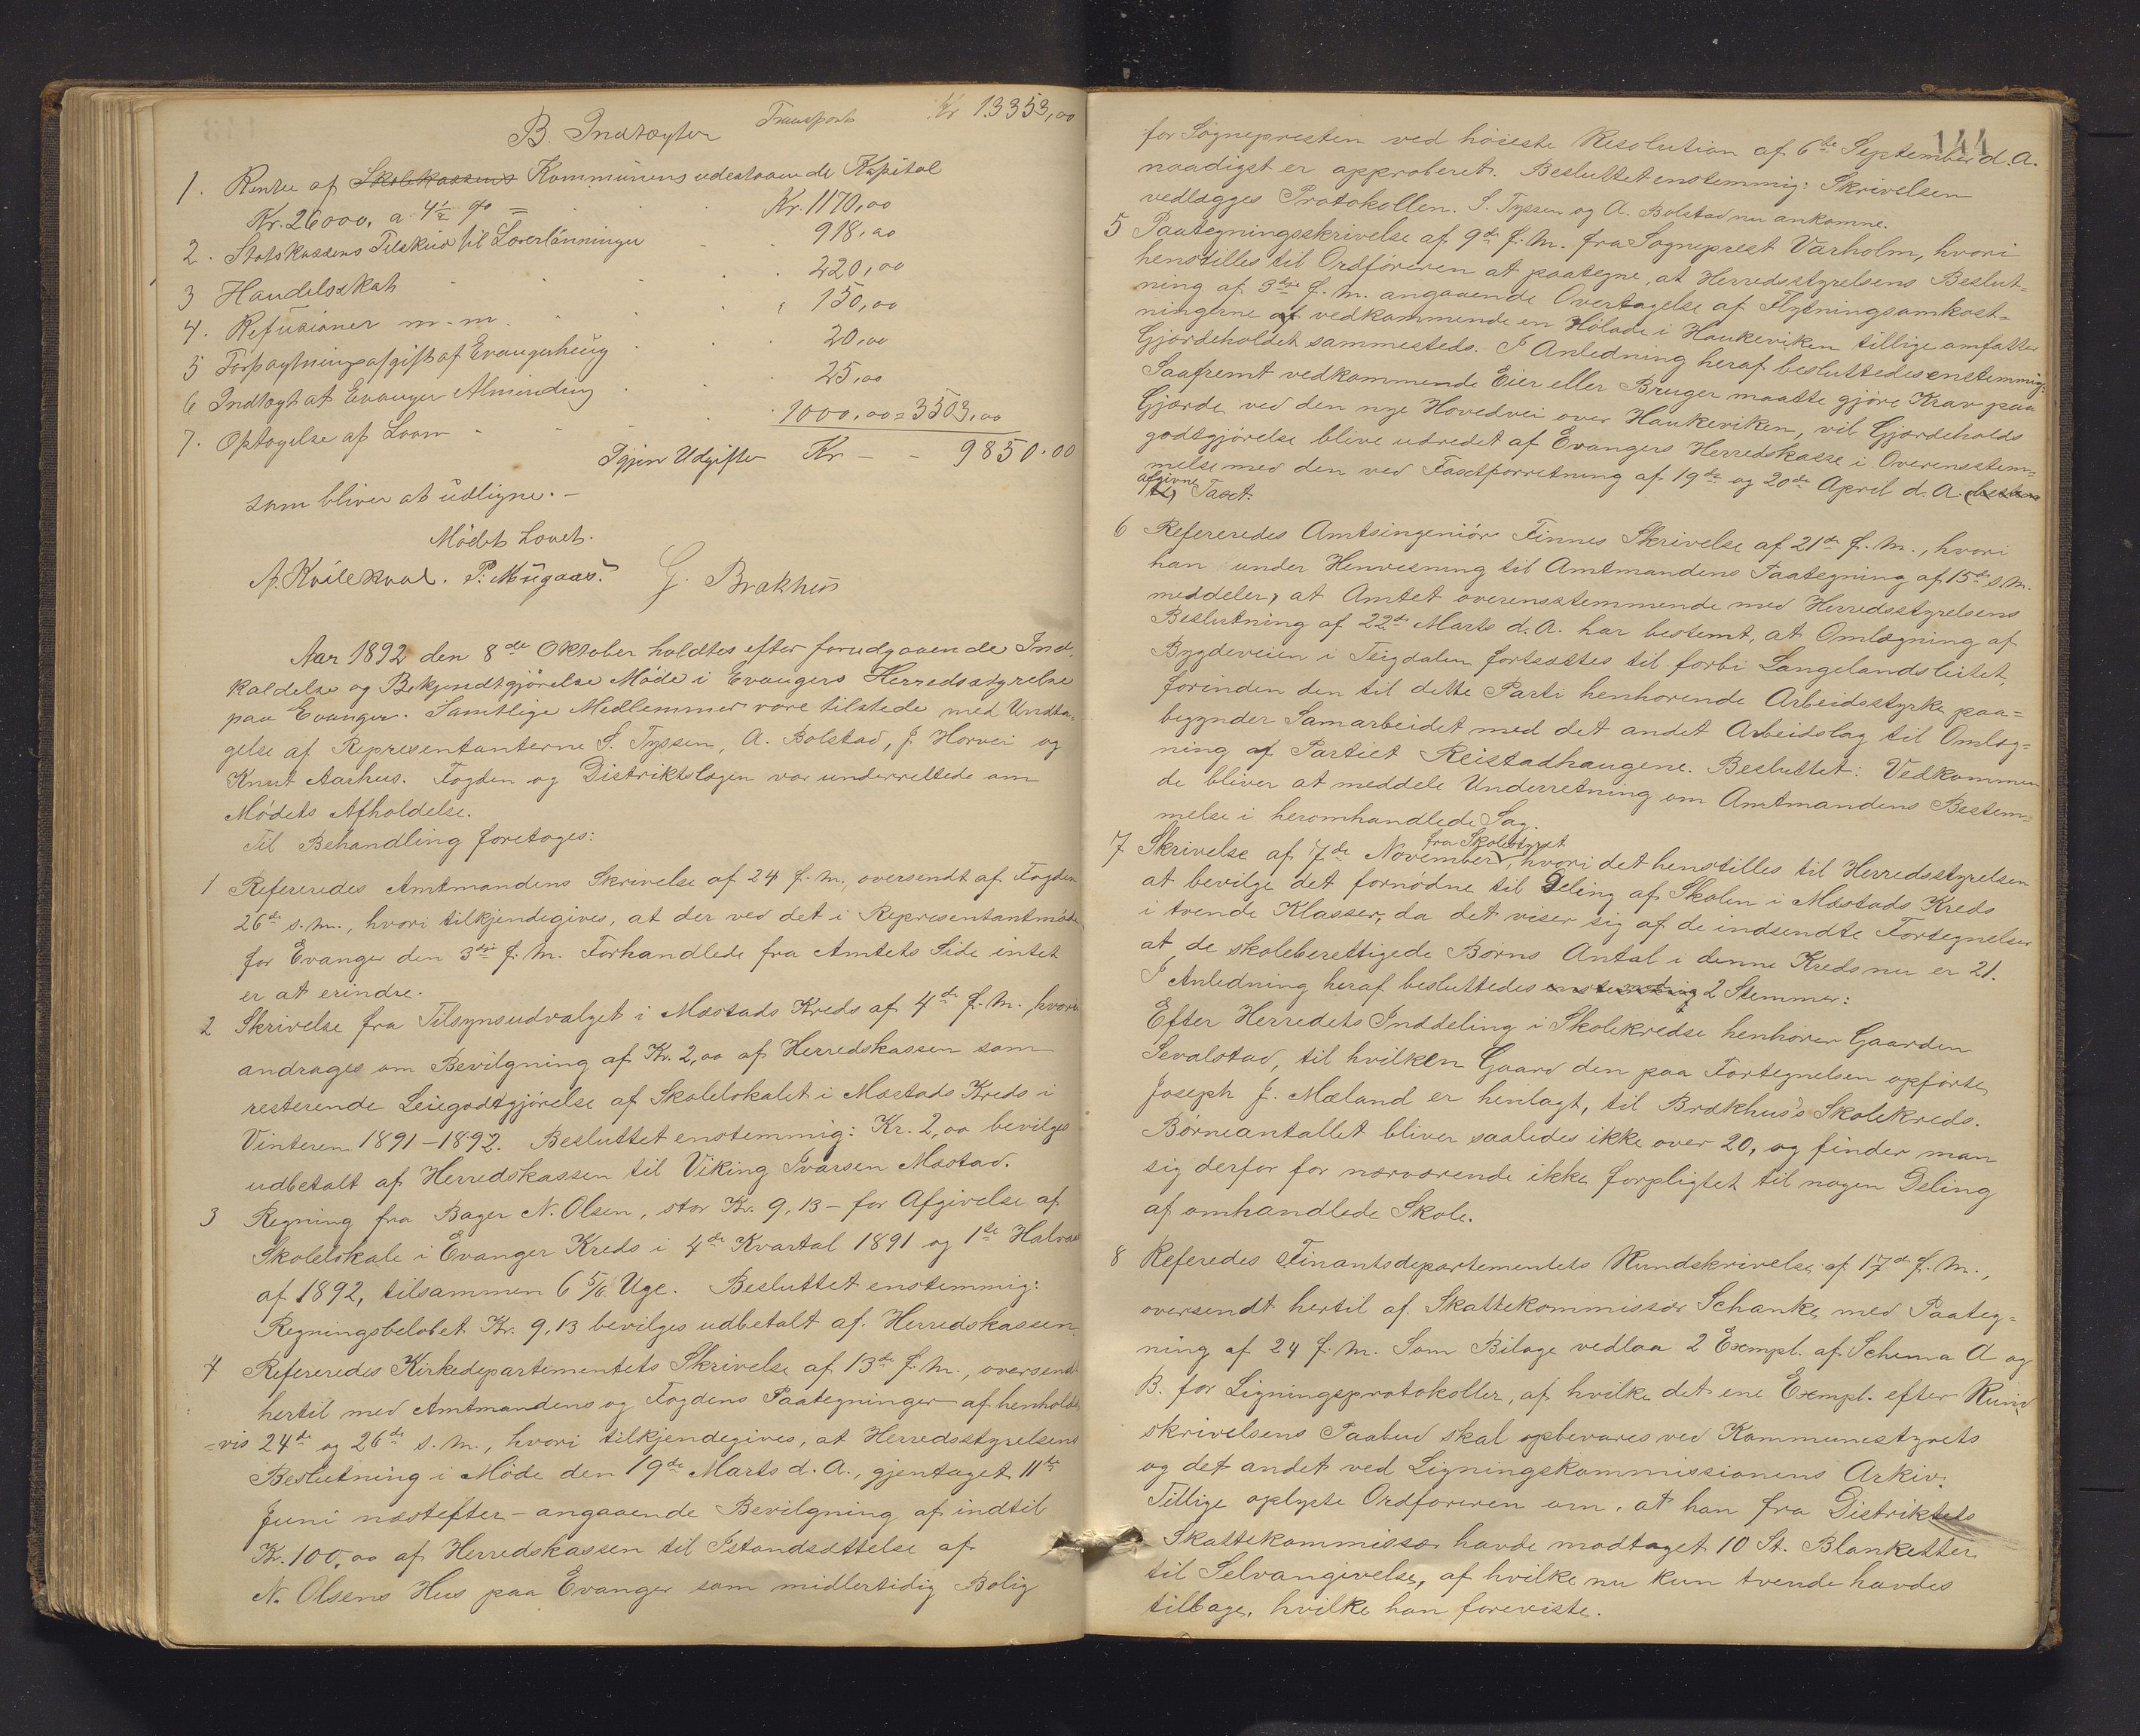 Transport Kr 13353,00
B. Indtægter
1. Renter af Skolekassens Kommunens udestaaende Kapital
Kr. 26000, a 4½ % = Kr. 1170,00
2. Statskassens Tilskud til Lærerlønninger 918,00
3 Handelsskat 220,00
4. Refusioner m. m. 150,00
5 Forpagtningsafgift af Evangerheug 20,00
6 Indtægt af Evanger Alminding 25,00
7. Optagelse af Laan 1000,00 = 3503,00
Igjen Udgifter Kr - - 9850.00
som bliver at udligne. -
Mödet hævet.
A. Kvilekval. P. Mügaas. G. Brakhus
Aar 1892 den 8de Oktober holdtes efter forudgaaende Ind-
kaldelse og Bekjendtgjörelse Möde i Evangers Herredsstyrelse
paa Evanger. Samtlige Medlemmer vare tilstede med Undta-
gelse af Repræsentanterne S. Tyssen, A. Bolstad, J. Horvei og
Knut Aarhus. Fogden og Distriktslægen var underrettede om
Mödets Afholdelse.
Til Behandling foretoges:
1 Refereredes Amtmandens Skrivelse af 24 f. M., oversendt af Fogden
26de s. M., hvori tilkjendegives, at der ved det i Representantmöde
for Evanger den 3die f. M. Forhandlede fra Amtets Side intet
er at erindre.
2 Skrivelse fra Tilsynsudvalget i Mæstads Kreds af 4de f. M. hvori
andrages om Bevilgning af Kr. 2,00 af Herredskassen som
resterende Leiegodtgjörelse af Skolelokalet i Mæstads Kreds i
Vinteren 1891-1892. Besluttet enstemmig: Kr. 2,00 bevilges
udbetalt af Herredskassen til Viking Ivarsen Mæstad.
3 Regning fra Bager N. Olsen, stor Kr. 9,13 - for Afgivelse af
Skolelokale i Evanger Kreds i 4de Kvartal 1891 og 1ste Halvaar
af 1892, tilsammen 6 5/6 Uge. Besluttet enstemmig:
Regningsbelöbet Kr. 9,13 bevilges udbetalt af Herredskassen.
4 Refereredes Kirkedepartementets Skrivelse af 13de f. M., oversendt
hertil med Amtmandens og Fogdens Paategninger af henholds-
=vis 24de og 26de s. M., hvori tilkjendegives, at Herredsstyrelsens
Beslutning i Möde den 19de Marts d. A., gjentaget 11te
Juni næstefter - angaaende Bevilgning af indtil
Kr. 100,00 af Herredskassen til Istandsættelse af
N. Olsens Hus paa Evanger som midlertidig Bolig
144
for Sognepresten ved höieste Resolution af 6te September d. A.
naadigst er approberet. Besluttet enstemmig: Skrivelsen
vedlægges Protokollen. S. Tyssen og A. Bolstad nu ankomne.
5 Paategningsskrivelse af 9de f. M. fra Sogneprest Varholm, hvori
henstilles til Ordföreren at paategne, at Herredsstyrelsens Beslut=
ning af 3die f. M. angaaende Overtagelse af Flytningsomkost=
ningerne af vedkommende en Hölade i Haukeviken tillige omfatter
Gjærdeholdet sammesteds. I Anledning heraf besluttedes enstemmig:
Saafremt vedkommende Eier eller Bruger maatte gjöre Krav paa
Gjærde ved den nye Hovedvei over Haukeviken, vil Gjærdeholds
godtgjörelse blive udredet af Evangers Herredskasse i Overensstem=
melse med den ved Taxtforretning af 19de og 20de April d. A.
afgivne Taxt.
6 Refereredes Amtsingeniör Finnes Skrivelse af 21de f. M., hvori
han under Henvisning til Amtmandens Paategning af 15de s. M.
meddeler, at Amtet overensstemmende med Herredsstyrelsens
Beslutning af 22de Marts d. A. har bestemt, at Omlægning af
Bygdeveien i Teigdalen fortsættes til forbi Langelandsleitet,
forinden den til dette Parti henhörende Arbeidsstyrke paa=
begynder Samarbeidet med det andet Arbeidslag til Omlæg=
ning af Partiet Reistadhaugene. Besluttet: Vedkommen
de bliver at meddele Underretning om Amtmandens Bestem=
melse i heromhandlede Sag.
fra Skolestyret
7 Skrivelse af 7de November, hvori det henstilles til Herredsstyrelsen
at bevilge det fornödne til Deling af Skolen i Mæstads Kreds
i tvende Klasser, da det viser sig af de indsendte Fortegnelser
at de skoleberettigede Börns Antal i denne Kreds nu er 21.
I Anledning heraf besluttedes enstemmig 2 Stemmer:
Efter Herredets Inddeling i Skolekredse henhörer Gaarden
Sevalstad, til hvilken Gaard den paa Fortegnelsen opförte
Joseph J. Mæland er henlagt, til Brækhus's Skolekreds.
Börneantallet bliver saaledes ikke over 20, og finder man
sig derfor for nærværende ikke forpligtet til nogen Deling
af omhandlede Skole.
8 Referedes Finantsdepartementets Rundskrivelse af 17de f. M.,
oversendt hertil af Skattekommissær Schanke med Paateg=
ning af 24 f. M. Som Bilage vedlaa 2 Exempl. af Schema A og
B. for Ligningsprotokoller, af hvilke det ene Exempl. efter Rund
skrivelsens Paabud skal opbevares ved Kommunestyrets
og det andet ved Ligningskommissionens Arkiv.
Tillige oplyste Ordföreren om, at han fra Distriktets
Skattekommissær havde modtaget 10 St. Blanketter
til Selvangivelse, af hvilke nu kun tvende havdes
tilbage, hvilke han foreviste.